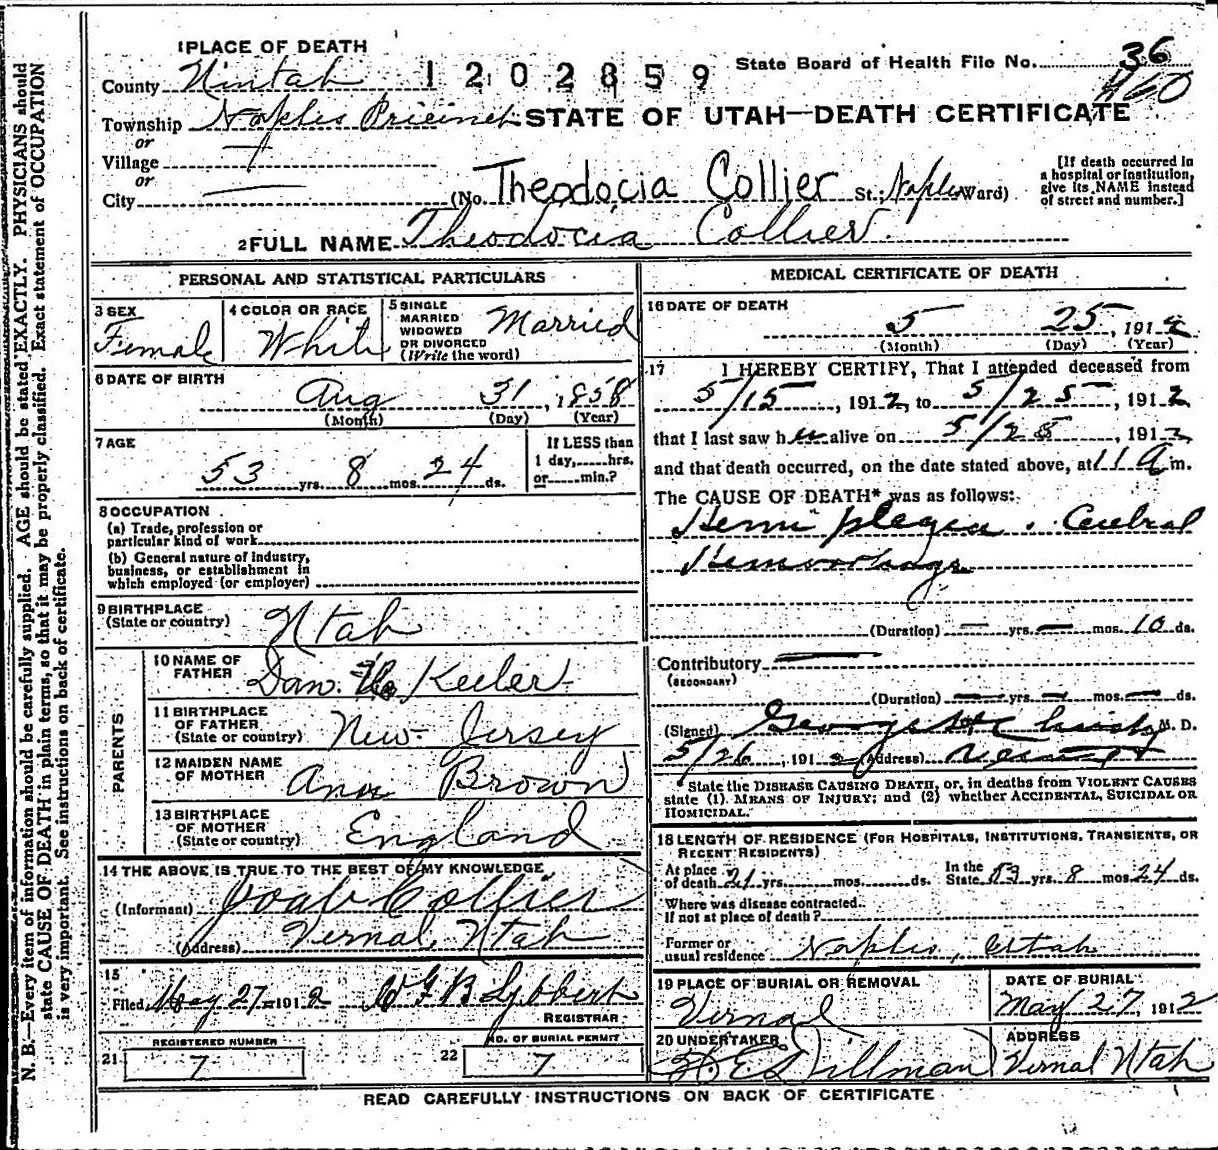 1 PLACE OF DEATH
County Uintah 1202859 State Board of Health File No. 36
460
Township Naples Precinct STATE OF UTAH—DEATH CERTIFICATE
or
Village
or
City (No. Theodocia Collier St.; Naples Ward)
[If death occurred in
a hospital or institution,
give its NAME instead
of street and number.]
2 FULL NAME Theodocia Collier.
PERSONAL AND STATISTICAL PARTICULARS
3 SEX
Female
4 COLOR OR RACE
White
5 SINGLE
MARRIED
WIDOWED
OR DIVORCED
(Write the word)
Married
6 DATE OF BIRTH
Aug 31, 1858
(Month) (Day) (Year)
7 AGE
53 yrs. 8 mos. 24 ds.
If LESS than
1 day, hrs.
or min.?
8 OCCUPATION
(a) Trade, profession or
particular kind of work
(b) General nature of industry,
business, or establishment in
which employed (or employer)
9 BIRTHPLACE
(State or country) Utah
PARENTS
10 NAME OF
FATHER Dan. Keeler
11 BIRTHPLACE
OF FATHER
(State or country) New Jersey
12 MAIDEN NAME
OF MOTHER Ann Brown
13 BIRTHPLACE
OF MOTHER
(State or country) England
14 THE ABOVE IS TRUE TO THE BEST OF MY KNOWLEDGE
(Informant) Joab Collier
(Address) Vernal, Utah
15
Filed May 27 1912 W G B Lybbert
REGISTRAR
REGISTERED NUMBER
21 7
NO. OF BURIAL PERMIT
22 7
MEDICAL CERTIFICATE OF DEATH
16 DATE OF DEATH
5 25, 1912
(Month) (Day) (Year)
17 I HEREBY CERTIFY, That I attended deceased from
5/15, 1912, to 5/25, 1912
that I last saw her alive on 5/25, 1912
and that death occurred, on the date stated above, at 11 a m.
The CAUSE OF DEATH* was as follows:
Hemiplegia. Cerebral
Hemorrhage
(Duration) — yrs. — mos. 10 ds.
Contributory —
(SECONDARY)
(Duration) — yrs. — mos. — ds.
(Signed) George H Christy M. D.
5/26, 1912 (Address) Vernal
*State the DISEASE CAUSING DEATH, or, in deaths from VIOLENT CAUSES
state (1) MEANS OF INJURY; and (2) whether ACCIDENTAL, SUICIDAL OR
HOMICIDAL.
18 LENGTH OF RESIDENCE (FOR HOSPITALS, INSTITUTIONS, TRANSIENTS, OR
RECENT RESIDENTS)
At place
of death 21 yrs. mos. ds. In the
State 53 yrs. 8 mos. 24 ds.
Where was disease contracted
If not at place of death?
Former or
usual residence Naples, Utah
19 PLACE OF BURIAL OR REMOVAL
Vernal
DATE OF BURIAL
May 27, 1912
20 UNDERTAKER
Dillman
ADDRESS
Vernal Utah
READ CAREFULLY INSTRUCTIONS ON BACK OF CERTIFICATE
N. B.—Every item of information should be carefully supplied. AGE should be stated EXACTLY. PHYSICIANS should
state CAUSE OF DEATH in plain terms, so that it may be properly classified. Exact statement of OCCUPATION
is very important. See instructions on back of certificate.